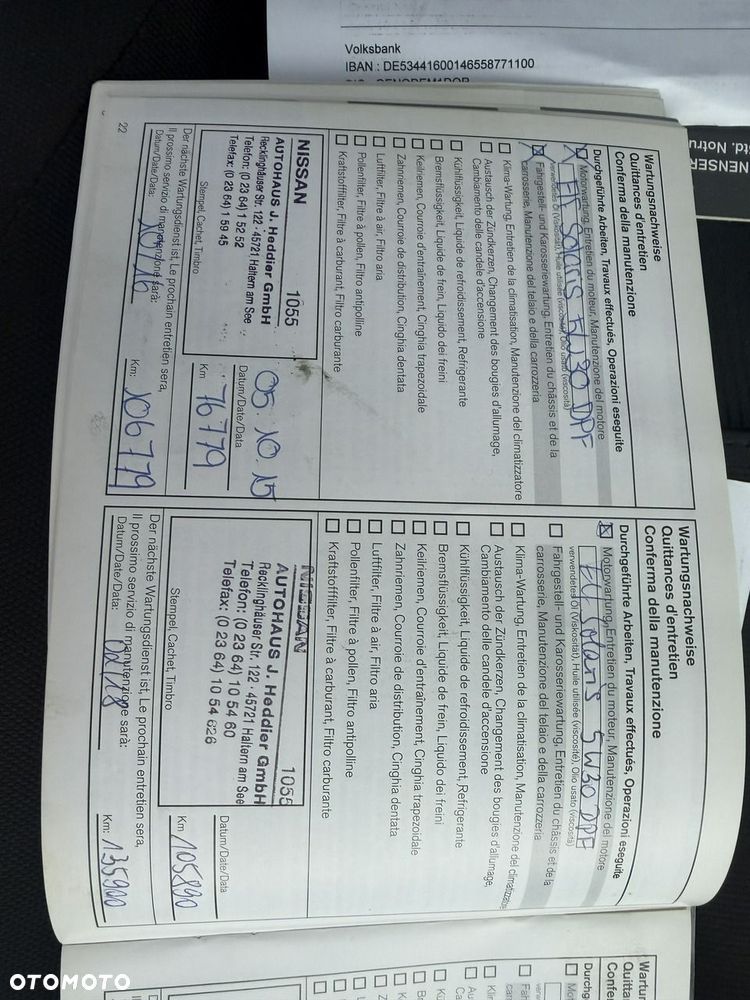 Volksbank
IBAN : DE53441600146558771100
Wartungsnachweise
Quittances d'entretien
Conferma della manutenzione
Durchgeführte Arbeiten, Travaux effectués, Operazioni eseguite
Motorwartung, Entretien du moteur, Manutenzione del motore
Elf Solaris 5W30 DPF
verwendetes Öl (Viskosität), Huile utilisée (viscosité), Olio usato (viscosità)
Fahrgestell- und Karosseriewartung, Entretien du châssis et de la
carrosserie, Manutenzione del telaio e della carrozzeria
Klima-Wartung, Entretien de la climatisation, Manutenzione del climatizzatore
Austausch der Zündkerzen, Changement des bougies d'allumage,
Cambiamento delle candele d'accensione
Kühlflüssigkeit, Liquide de refroidissement, Refrigerante
Bremsflüssigkeit, Liquide de frein, Liquido dei freini
Keilriemen, Courroie d'entraînement, Cinghia trapezoidale
Zahnriemen, Courroie de distribution, Cinghia dentata
Luftfilter, Filtre à air, Filtro aria
Pollenfilter, Filtre à pollen, Filtro antipolline
Kraftstofffilter, Filtre à carburant, Filtro carburante
NISSAN 1055
AUTOHAUS J. Heddier GmbH
Recklinghäuser Str. 122 · 45721 Haltern am See
Telefon: (0 23 64) 1 52 52
Telefax: (0 23 64) 1 59 45
Stempel, Cachet, Timbro
05.10.15
Datum/Date/Data
76779
Km
Der nächste Wartungsdienst ist, Le prochain entretien sera,
Il prossimo servizio di manutenzione sarà:
Datum/Date/Data: 10/16
Km: 106779
22
Wartungsnachweise
Quittances d'entretien
Conferma della manutenzione
Durchgeführte Arbeiten, Travaux effectués, Operazioni eseguite
Motorwartung, Entretien du moteur, Manutenzione del motore
Elf Solaris 5W30 DPF
verwendetes Öl (Viskosität), Huile utilisée (viscosité), Olio usato (viscosità)
Fahrgestell- und Karosseriewartung, Entretien du châssis et de la
carrosserie, Manutenzione del telaio e della carrozzeria
Klima-Wartung, Entretien de la climatisation, Manutenzione del
Austausch der Zündkerzen, Changement des bougies d'allumage,
Cambiamento delle candele d'accensione
Kühlflüssigkeit, Liquide de refroidissement, Refrigerante
Bremsflüssigkeit, Liquide de frein, Liquido dei freini
Keilriemen, Courroie d'entraînement, Cinghia trapezoidale
Zahnriemen, Courroie de distribution, Cinghia dentata
Luftfilter, Filtre à air, Filtro aria
Pollenfilter, Filtre à pollen, Filtro antipolline
Kraftstofffilter, Filtre à carburant, Filtro carburante
NISSAN 1055
AUTOHAUS J. Heddier GmbH
Recklinghäuser Str. 122 · 45721 Haltern am See
Telefon: (0 23 64) 10 54 60
Telefax: (0 23 64) 10 54 626
Stempel, Cachet, Timbro
Datum/Date/Data
Km 105890
Der nächste Wartungsdienst ist, Le prochain entretien sera,
Il prossimo servizio di manutenzione sarà:
Datum/Date/Data: 02/18
Km: 135900
OTOMOTO